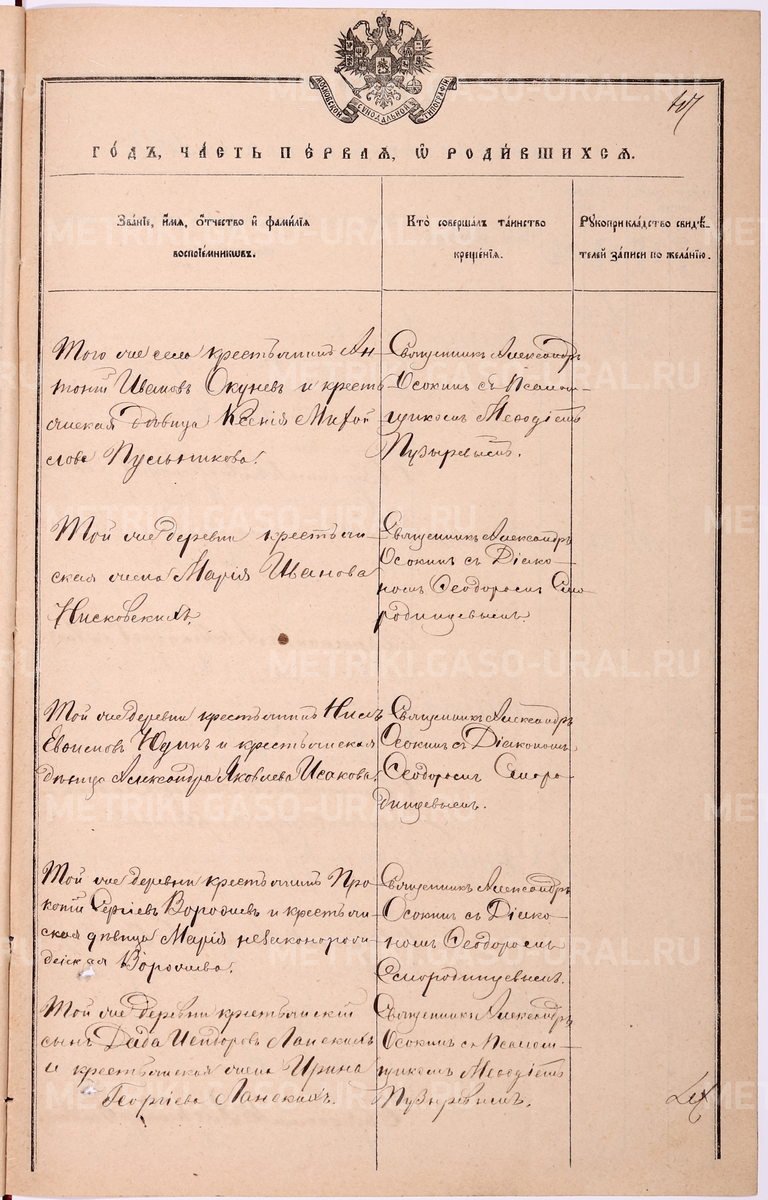 МОСКОВСКОЙ СѴНОДАЛЬНОЙ ТИПОГРАФІИ
ГОДЪ, ЧАСТЬ ПЕРВАЯ, Ѡ РОДИВШИХСЯ.
Званіе, имя, отчество и фамилія
воспріемниковъ.
Кто совершалъ таинство
крещенія.
Рукоприкладство свидѣ-
телей записи по желанію.
Того же села крестьянинъ Ан-
тоній Ивановъ Окуневъ и кресть-
янская дѣвица Ксенія
Священникъ Александръ
Осокинъ съ Псалом-
щикомъ Меѳодіемъ
Пузыревымъ.
Той же деревни крестьян-
ская жена Марія Иванова
Нисковскихъ.
Священникъ Александръ
Осокинъ съ Діако-
номъ Ѳеодоромъ Смо-
родинцевымъ.
Той же деревни крестьянинъ Нилъ
Евѳимовъ Юдинъ и крестьянская
дѣвица Александра Яковлева Исакова.
Священникъ Александръ
Осокинъ съ Діакономъ
Ѳеодоромъ Сморо-
динцевымъ.
Той же деревни крестьянинъ Про-
копій Сергіевъ и крестьян-
ская дѣвица Марія незаконорож-
денская
Священникъ Александръ
Осокинъ съ Діако-
номъ Ѳеодоромъ
Смородинцевымъ.
Той же деревни крестьянскій
сынъ Ланскихъ
и крестьянская жена Ирина
Георгіева Ланскихъ.
Священникъ Александръ
Осокинъ съ Псалом-
щикомъ Меѳодіемъ
Пузыревымъ.
METRIKI.GASO-URAL.RU